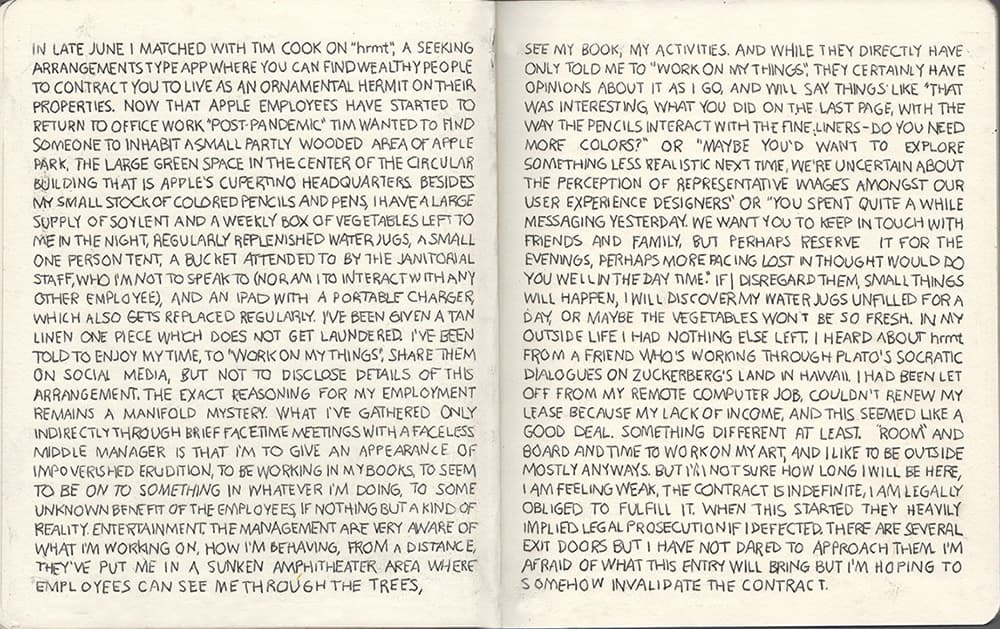 IN LATE JUNE I MATCHED WITH TIM COOK ON "hrmt", A SEEKING
ARRANGEMENTS TYPE APP WHERE YOU CAN FIND WEALTHY PEOPLE
TO CONTRACT YOU TO LIVE AS AN ORNAMENTAL HERMIT ON THEIR
PROPERTIES. NOW THAT APPLE EMPLOYEES HAVE STARTED TO
RETURN TO OFFICE WORK "POST-PANDEMIC" TIM WANTED TO FIND
SOMEONE TO INHABIT A SMALL PARTLY WOODED AREA OF APPLE
PARK, THE LARGE GREEN SPACE IN THE CENTER OF THE CIRCULAR
BUILDING THAT IS APPLE'S CUPERTINO HEADQUARTERS. BESIDES
MY SMALL STOCK OF COLORED PENCILS AND PENS, I HAVE A LARGE
SUPPLY OF SOYLENT AND A WEEKLY BOX OF VEGETABLES LEFT TO
ME IN THE NIGHT, REGULARLY REPLENISHED WATER JUGS, A SMALL
ONE PERSON TENT, A BUCKET ATTENDED TO BY THE JANITORIAL
STAFF, WHO I'M NOT TO SPEAK TO (NOR AM I TO INTERACT WITH ANY
OTHER EMPLOYEE), AND AN IPAD WITH A PORTABLE CHARGER,
WHICH ALSO GETS REPLACED REGULARLY. I'VE BEEN GIVEN A TAN
LINEN ONE PIECE WHICH DOES NOT GET LAUNDERED. I'VE BEEN
TOLD TO ENJOY MY TIME, TO "WORK ON MY THINGS", SHARE THEM
ON SOCIAL MEDIA, BUT NOT TO DISCLOSE DETAILS OF THIS
ARRANGEMENT. THE EXACT REASONING FOR MY EMPLOYMENT
REMAINS A MANIFOLD MYSTERY. WHAT I'VE GATHERED ONLY
INDIRECTLY THROUGH BRIEF FACETIME MEETINGS WITH A FACELESS
MIDDLE MANAGER IS THAT I'M TO GIVE AN APPEARANCE OF
IMPOVERISHED ERUDITION, TO BE WORKING IN MY BOOKS, TO SEEM
TO BE ON TO SOMETHING IN WHATEVER I'M DOING, TO SOME
UNKNOWN BENEFIT OF THE EMPLOYEES, IF NOTHING BUT A KIND OF
REALITY. ENTERTAINMENT. THE MANAGEMENT ARE VERY AWARE OF
WHAT I'M WORKING ON, HOW I'M BEHAVING, FROM A DISTANCE,
THEY'VE PUT ME IN A SUNKEN AMPHITHEATER AREA WHERE
EMPLOYEES CAN SEE ME THROUGH THE TREES,
SEE MY BOOK, MY ACTIVITIES. AND WHILE THEY DIRECTLY HAVE
ONLY TOLD ME TO "WORK ON MY THINGS", THEY CERTAINLY HAVE
OPINIONS ABOUT IT AS I GO, AND WILL SAY THINGS LIKE "THAT
WAS INTERESTING, WHAT YOU DID ON THE LAST PAGE, WITH THE
WAY THE PENCILS INTERACT WITH THE FINE-LINERS - DO YOU NEED
MORE COLORS?" OR "MAYBE YOU'D WANT TO EXPLORE
SOMETHING LESS REALISTIC NEXT TIME, WE'RE UNCERTAIN ABOUT
THE PERCEPTION OF REPRESENTATIVE IMAGES AMONGST OUR
USER EXPERIENCE DESIGNERS" OR "YOU SPENT QUITE A WHILE
MESSAGING YESTERDAY. WE WANT YOU TO KEEP IN TOUCH WITH
FRIENDS AND FAMILY, BUT PERHAPS RESERVE IT FOR THE
EVENINGS, PERHAPS MORE PACING LOST IN THOUGHT WOULD DO
YOU WELL IN THE DAY TIME." IF I DISREGARD THEM, SMALL THINGS
WILL HAPPEN, I WILL DISCOVER MY WATER JUGS UNFILLED FOR A
DAY, OR MAYBE THE VEGETABLES WON'T BE SO FRESH. IN MY
OUTSIDE LIFE I HAD NOTHING ELSE LEFT. I HEARD ABOUT hrmt
FROM A FRIEND WHO'S WORKING THROUGH PLATO'S SOCRATIC
DIALOGUES ON ZUCKERBERG'S LAND IN HAWAII. I HAD BEEN LET
OFF FROM MY REMOTE COMPUTER JOB, COULDN'T RENEW MY
LEASE BECAUSE MY LACK OF INCOME, AND THIS SEEMED LIKE A
GOOD DEAL. SOMETHING DIFFERENT AT LEAST. "ROOM" AND
BOARD AND TIME TO WORK ON MY ART, AND I LIKE TO BE OUTSIDE
MOSTLY ANYWAYS. BUT I'M NOT SURE HOW LONG I WILL BE HERE,
I AM FEELING WEAK, THE CONTRACT IS INDEFINITE, I AM LEGALLY
OBLIGED TO FULFILL IT. WHEN THIS STARTED THEY HEAVILY
IMPLIED LEGAL PROSECUTION IF I DEFECTED. THERE ARE SEVERAL
EXIT DOORS BUT I HAVE NOT DARED TO APPROACH THEM. I'M
AFRAID OF WHAT THIS ENTRY WILL BRING BUT I'M HOPING TO
SOMEHOW INVALIDATE THE CONTRACT.